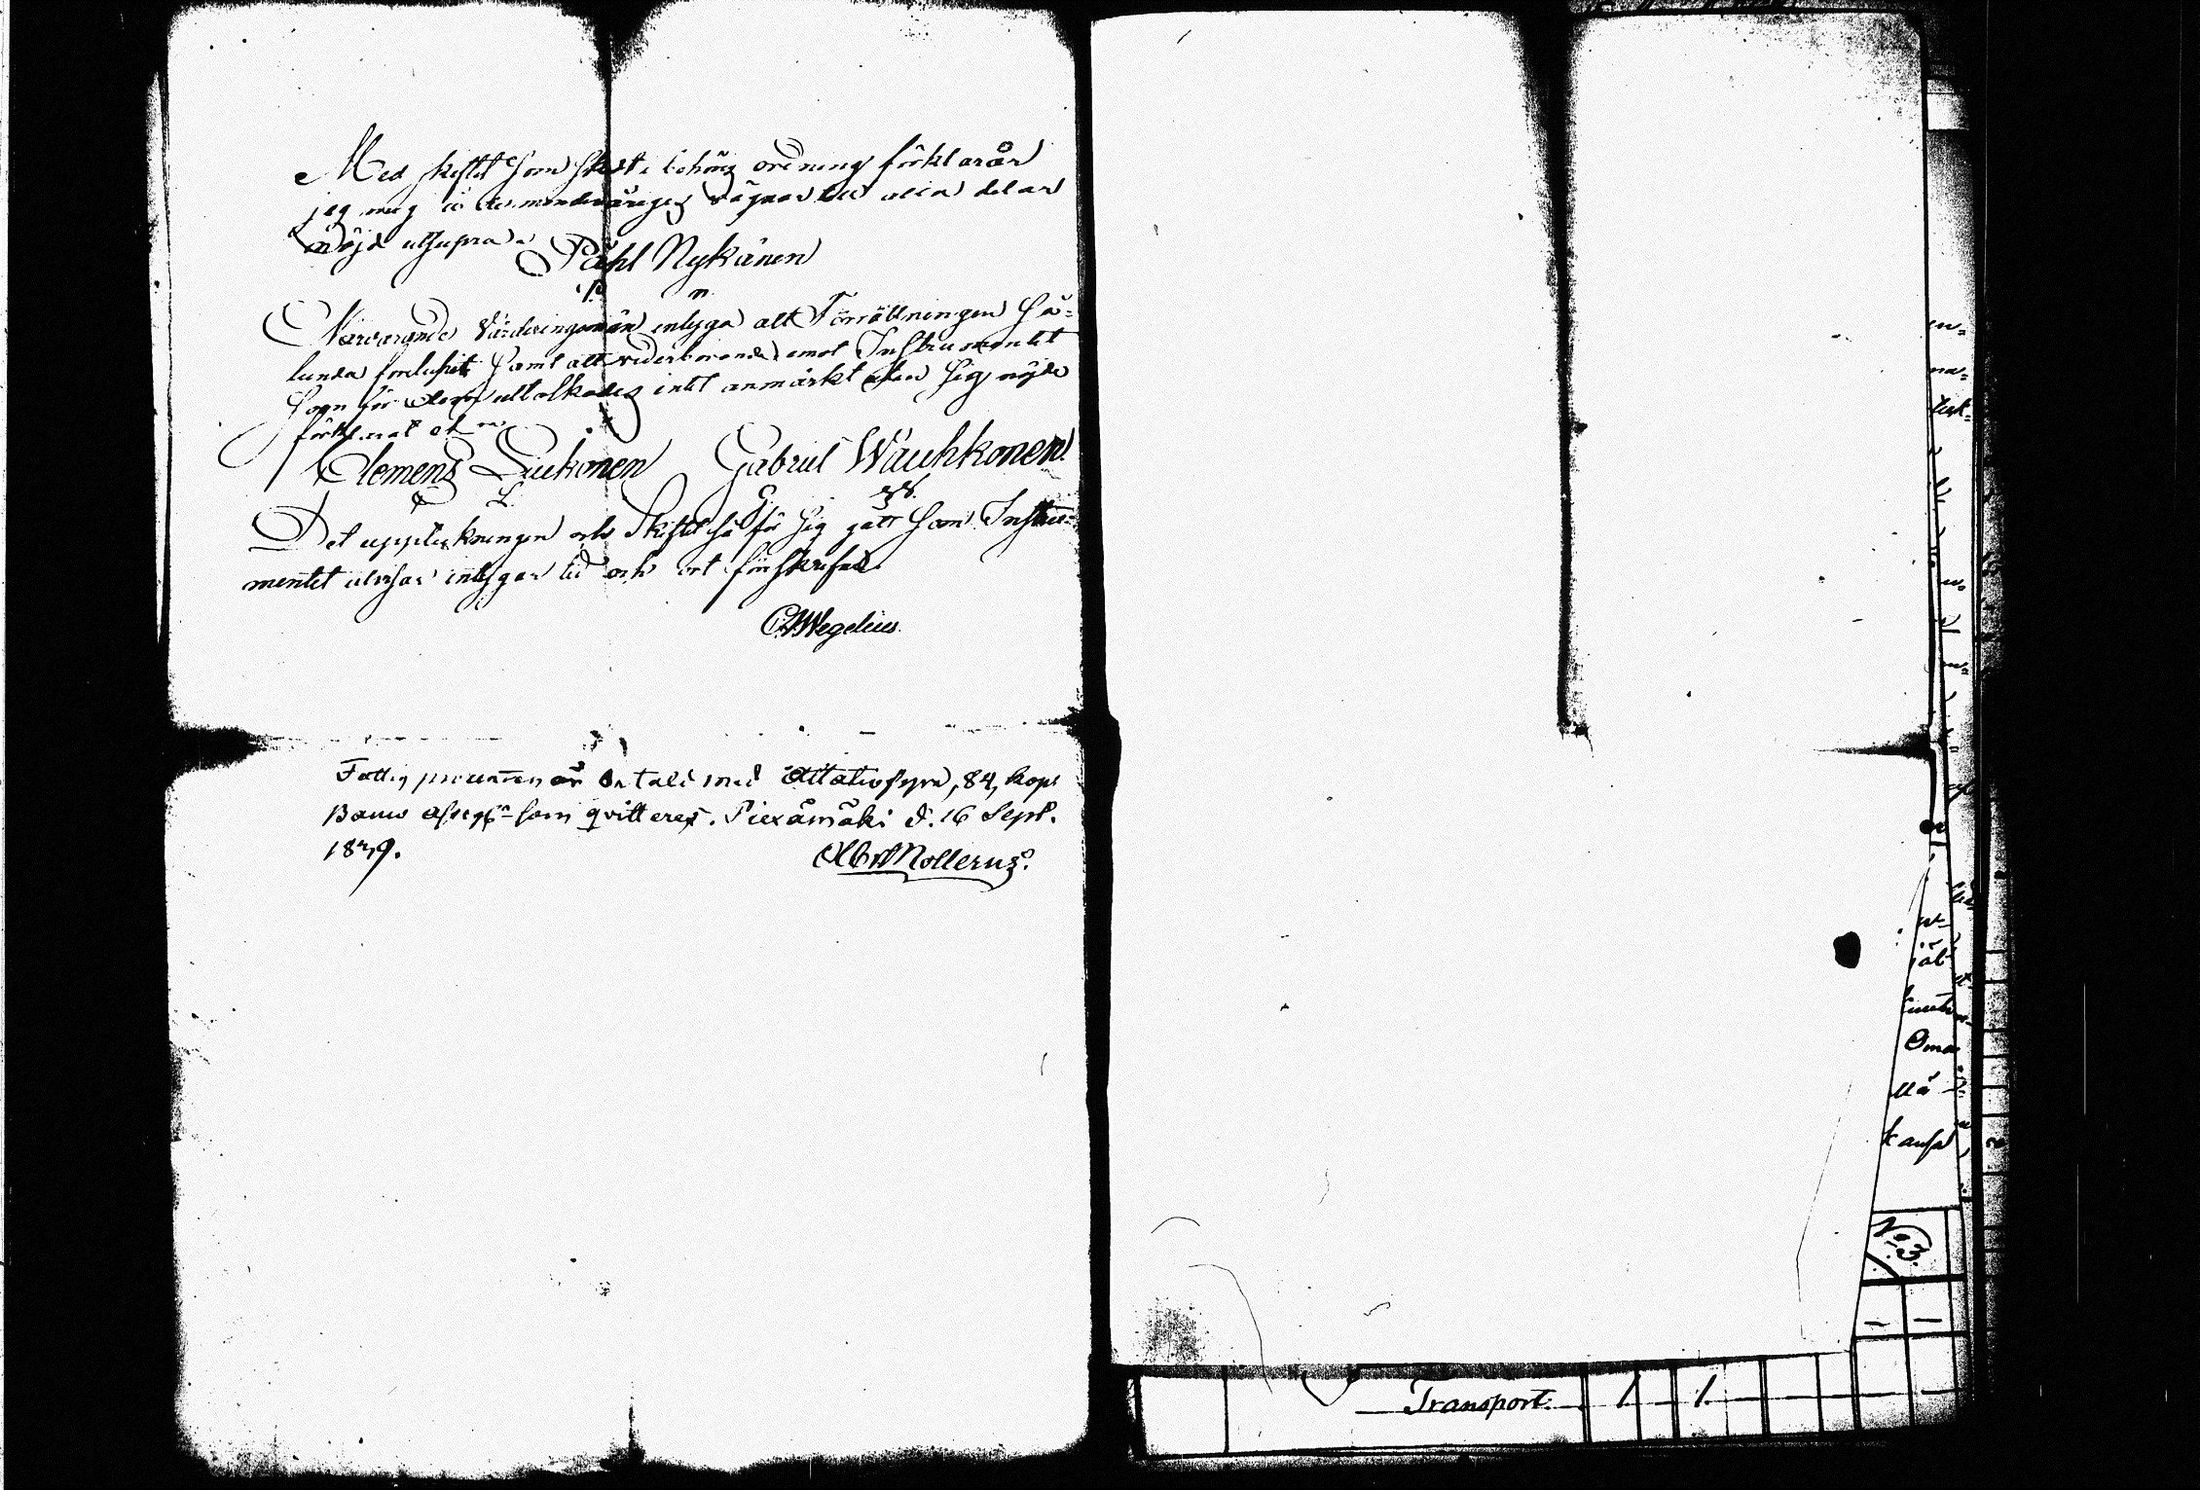 Med skiftet som skett i behörig ordning förklarar
jag mig å de omyndigas vägnar till alla delar
nöjd utsupra
Påhl Nykänen
Närvarande Värderingsmän intyga att Förrättningen så-
lunda förelupit samt att vederbörande emot Instrumentet
som för dem uttolkades intet anmärkt utan sig nöjde
förklarat
Clemens Liukonen Gabriel Wauhkonen
C L G W
Det uppteckningen och skiftet så för sig gått som Instru-
mentet utvisar intygar tid och ort förskrefne
Wegelius
Fattig procenten är betald med åttatiofyra, 84, kop
Banco assign som qvitteras. Piexämäki d. 16 Sept.
18
Mollerus
Transport. 1 1
No 3